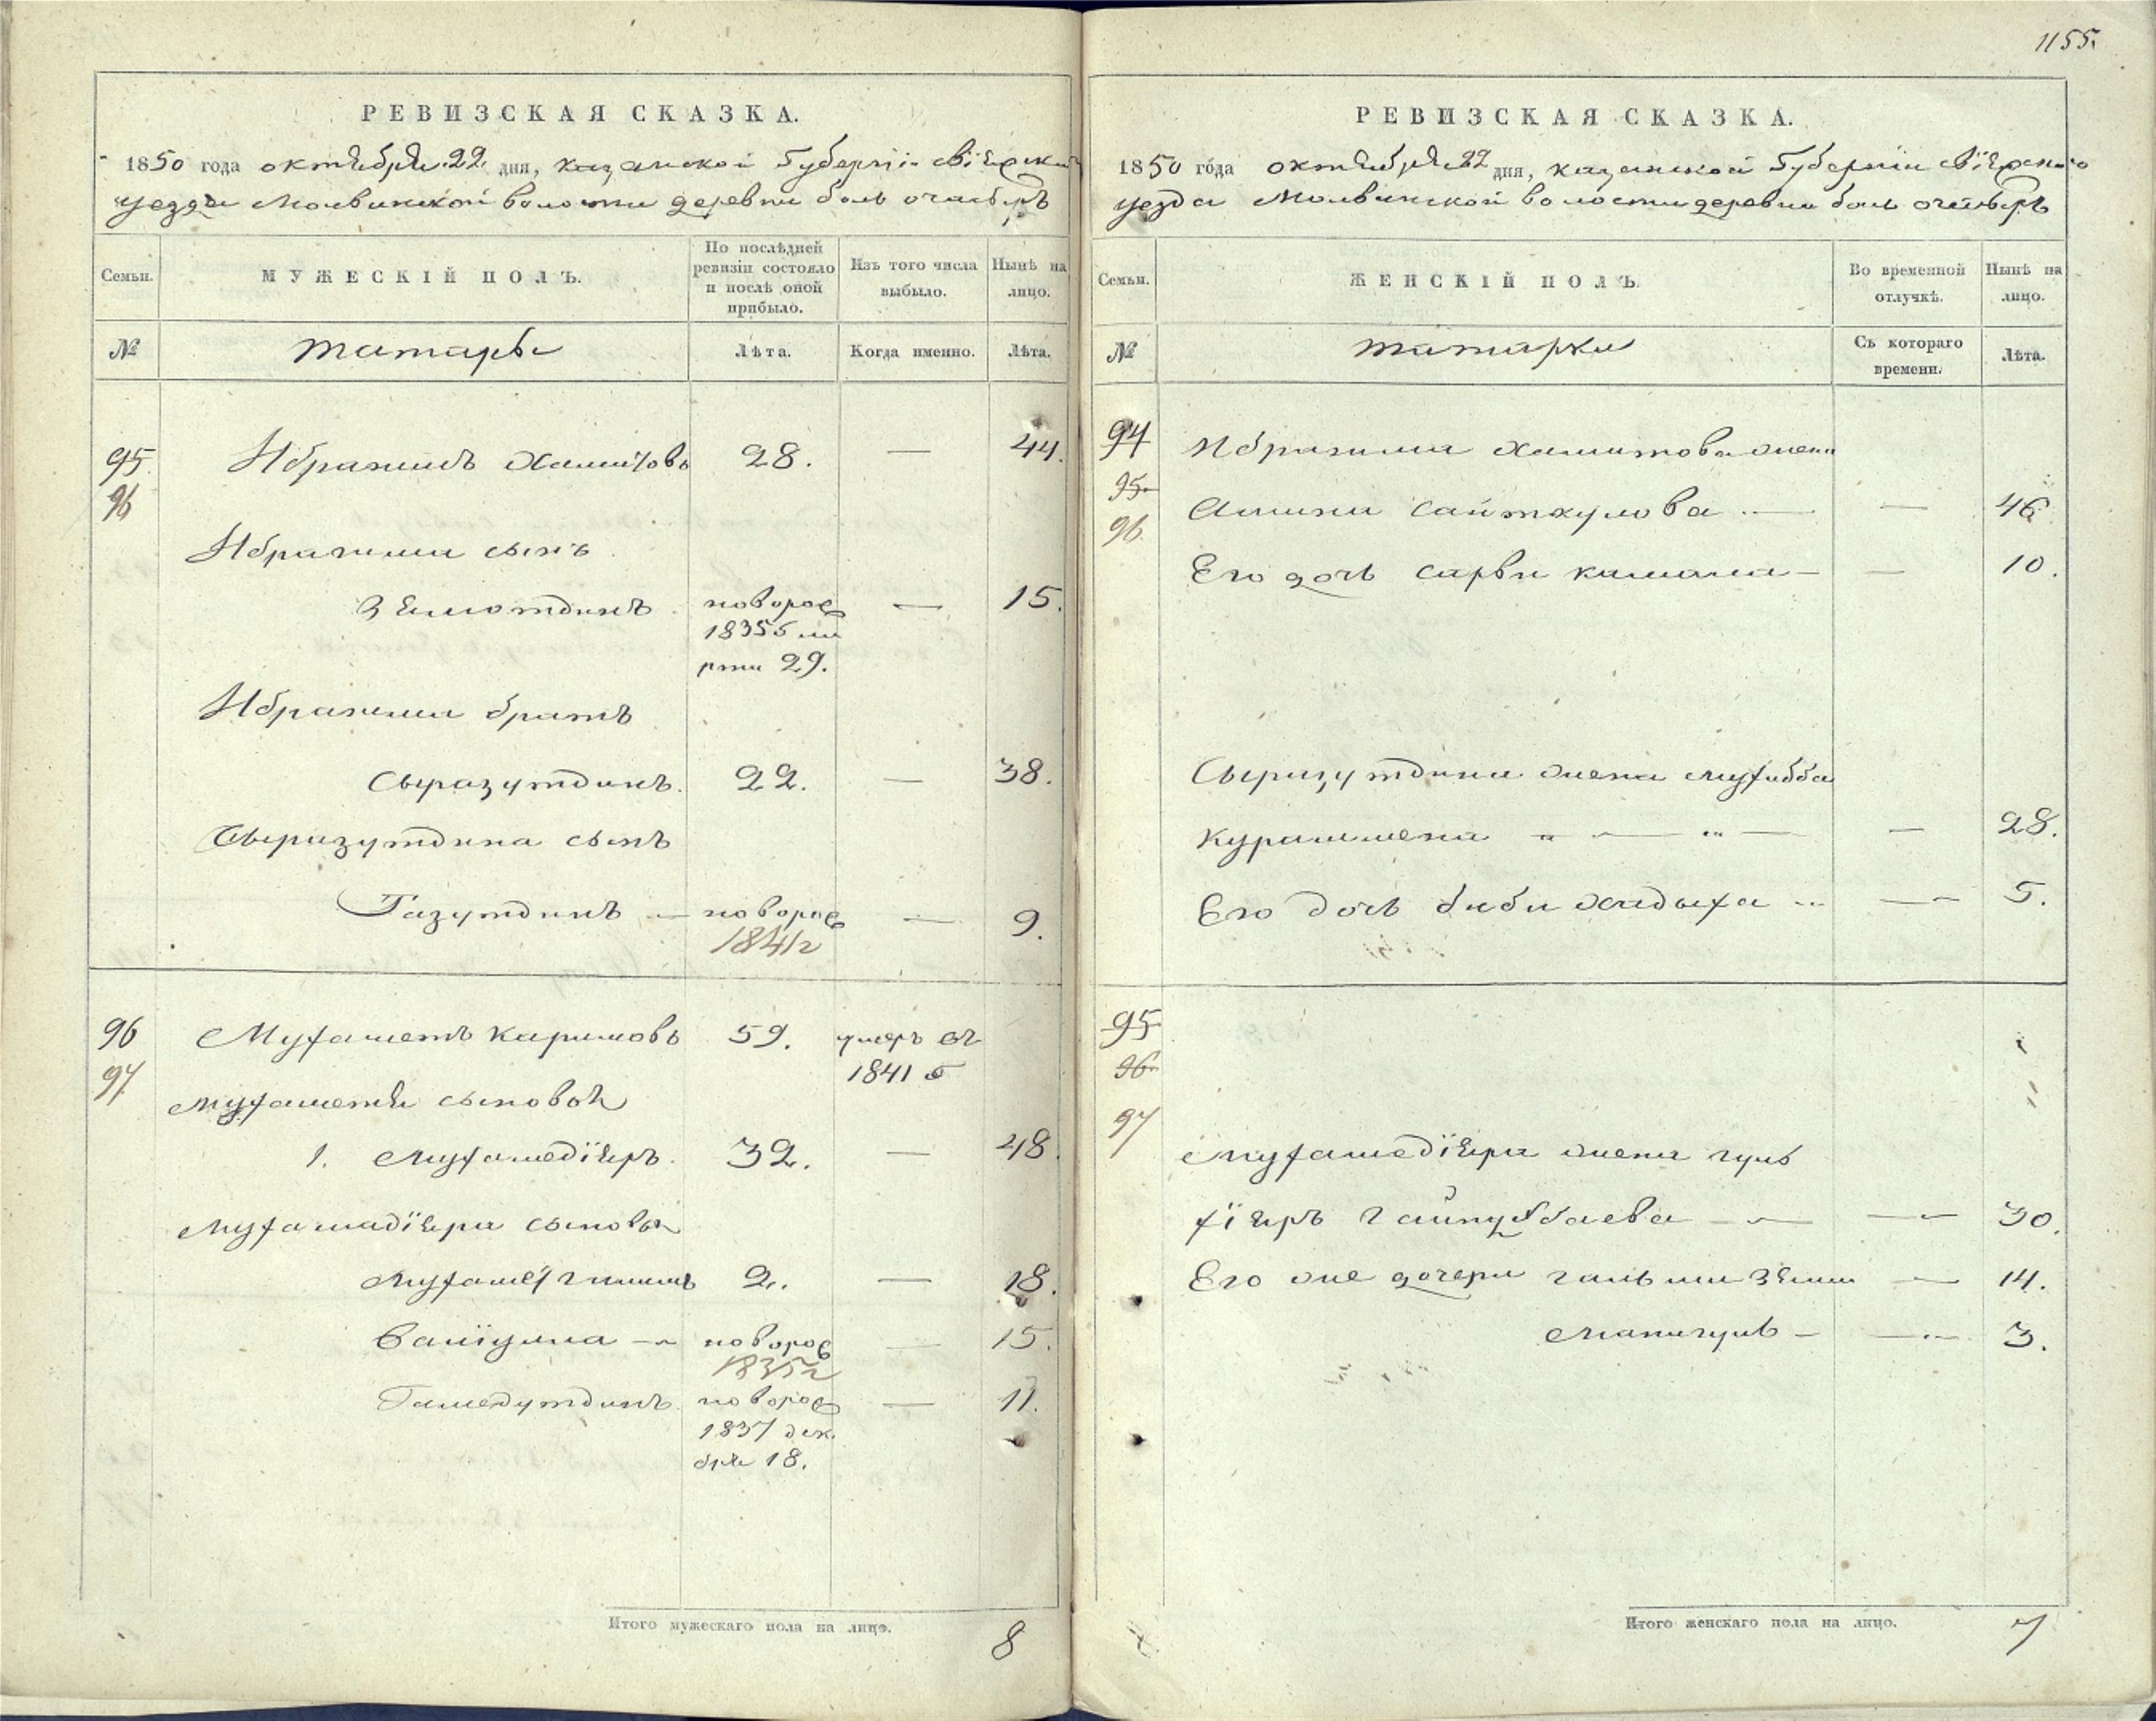 1155.
РЕВИЗСКАЯ СКАЗКА.
1850 года октября 22 дня, казанской Губерніи свіяжскаго
уезда Молвинской волости деревни боль очасырь
Семьи. МУЖЕСКІЙ ПОЛЪ. По послѣдней ревизіи состояло и послѣ оной прибыло. Изъ того числа выбыло. Нынѣ на лицо.
№ татары Лѣта. Когда именно. Лѣта.
95 Ибрагимъ Хамитовъ 28. — 44.
96
Ибрагима сынъ
Зямотдинъ новорож — 15.
1835 ма
рта 29.
Ибрагима братъ
Сыразутдинъ. 22. — 38.
Сыразутдина сынъ
Газутдинъ — новорож — 9.
1841 г
96 Мухаметъ каримовъ 59. умеръ въ
97 1841 г
мухаметя сыновья
1. мухамедіяръ. 32. — 48.
мухамадіяра сыновья
2. — 18.
Валіулла — новорож — 15.
1835 г
Гамедутдинъ. новорож — 11.
1837 дек.
бря 18.
Итого мужескаго пола на лицо. 8
РЕВИЗСКАЯ СКАЗКА.
1850 года октября 22 дня, казанской Губерніи свіяжскаго
уезда Молвинской волости деревни боль очасырь
Семьи. ЖЕНСКІЙ ПОЛЪ. Во временной отлучкѣ. Нынѣ на лицо.
№ татарки Съ котораго времени. Лѣта.
94 Ибрагима Хамитова жена
95
96 сайткулова — — 46
Его дочь сарви камала — — 10.
Сыразутдина жена мухибба
курамшена — — 28.
Его дочь биби хадыха — 5.
95
96
97
мухамедіяра жена гуль
— — 30.
Его же дочери — 14.
— — 3.
Итого женскаго пола на лицо. 7